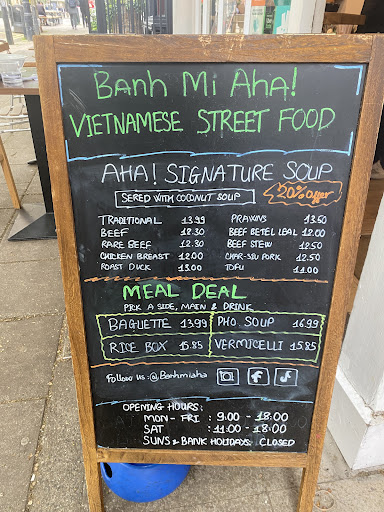 Banh Mi Aha!
VIETNAMESE STREET FOOD
AHA! SIGNATURE SOUP
SERED WITH COCONUT SOUP 20% offer
TRADITIONAL 13.99 PRAWNS 13.50
BEEF 12.30 BEEF BETEL LEAL 12.00
RARE BEEF 12.30 BEEF STEW 12.50
CHICKEN BREAST 12.00 CHAR-SIU PORK 12.50
ROAST DUCK 13.00 TOFU 11.00
MEAL DEAL
PICK A SIDE, MAIN & DRINK
BAGUETTE 13.99 PHO SOUP 16.99
RICE BOX 15.85 VERMICELLI 15.85
Follow us: @Banhmiaha
OPENING HOURS:
MON - FRI : 9:00 - 18:00
SAT : 11:00 - 18:00
SUNS & BANK HOLIDAYS: CLOSED